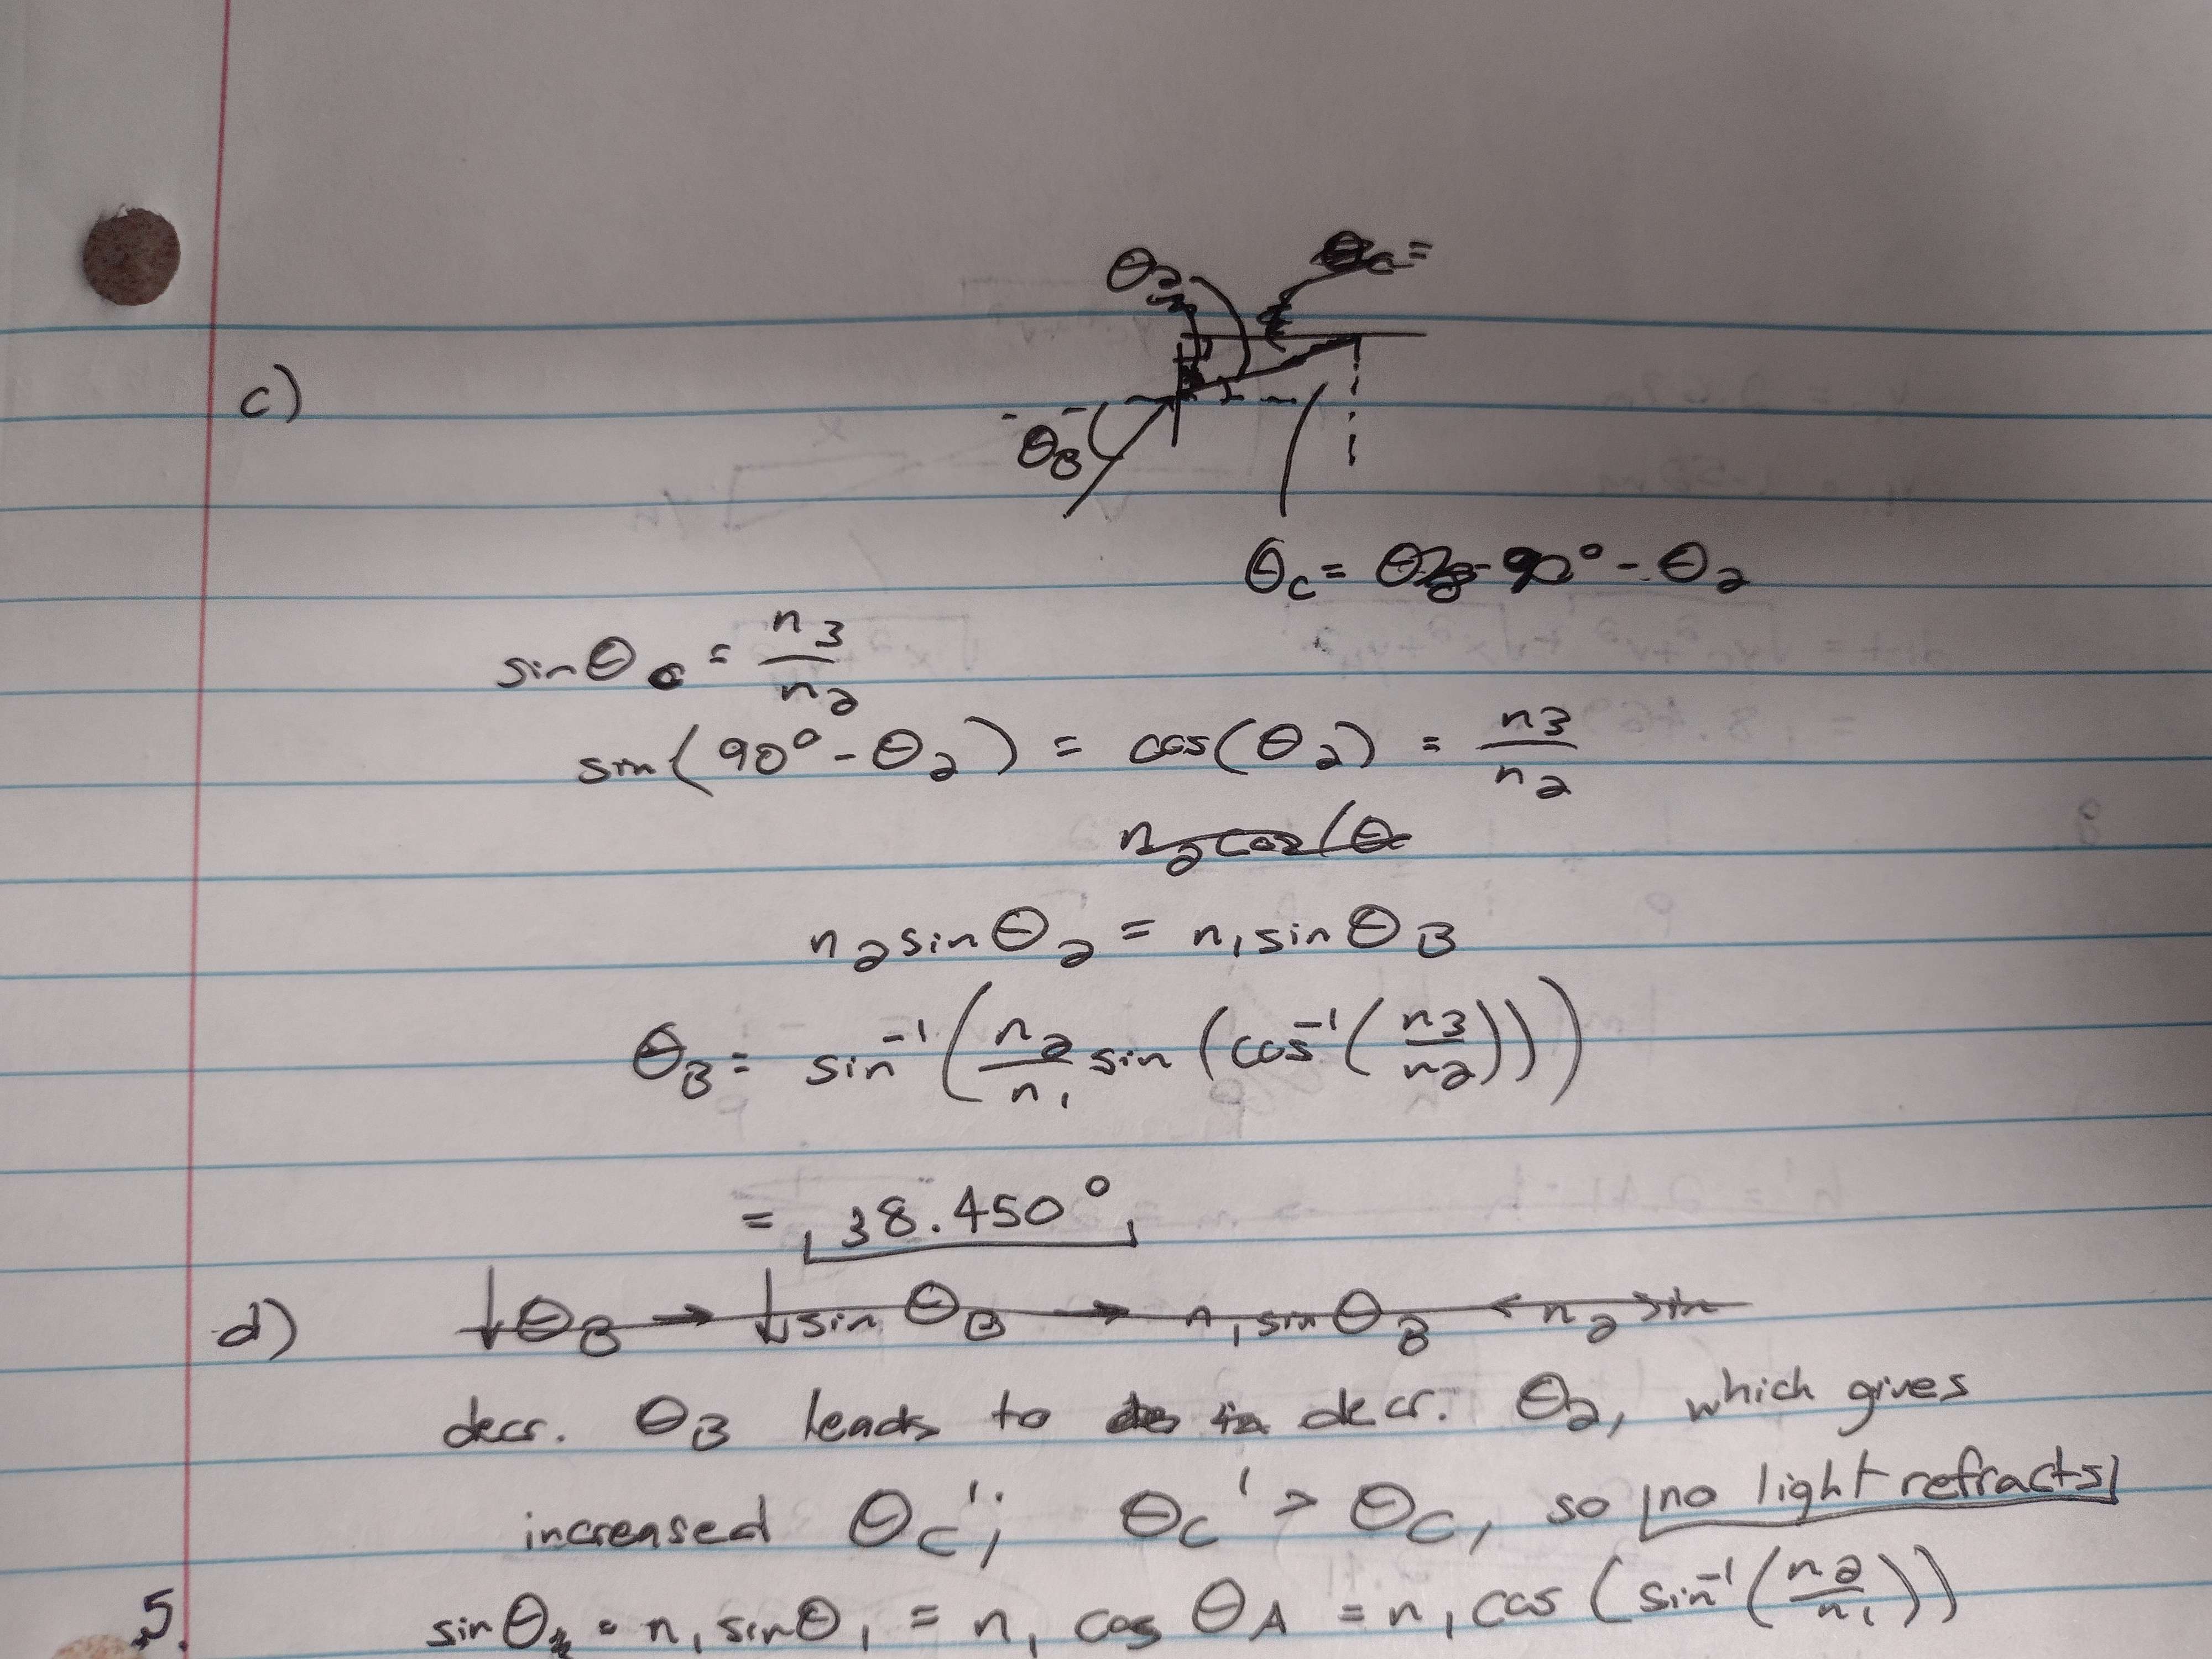 θ₂ θc =
c)
θB
θc = 90° - θ₂
sinθc = n₃/n₂
sin(90° - θ₂) = cos(θ₂) = n₃/n₂
n₂cos(θ
n₂sinθ₂ = n₁sinθB
θB = sin⁻¹(n₂/n₁ sin(cos⁻¹(n₃/n₂)))
= 38.450°
d) ↓θB → ↓sin θB → n₁sinθB ← n₂ sin
decr. θB leads to decr. θ₂, which gives
increased θc'; θc' > θc, so no light refracts
5. sinθ = n₁sinθ₁ = n₁ cos θA = n₁cos(sin⁻¹(n₂/n₁))